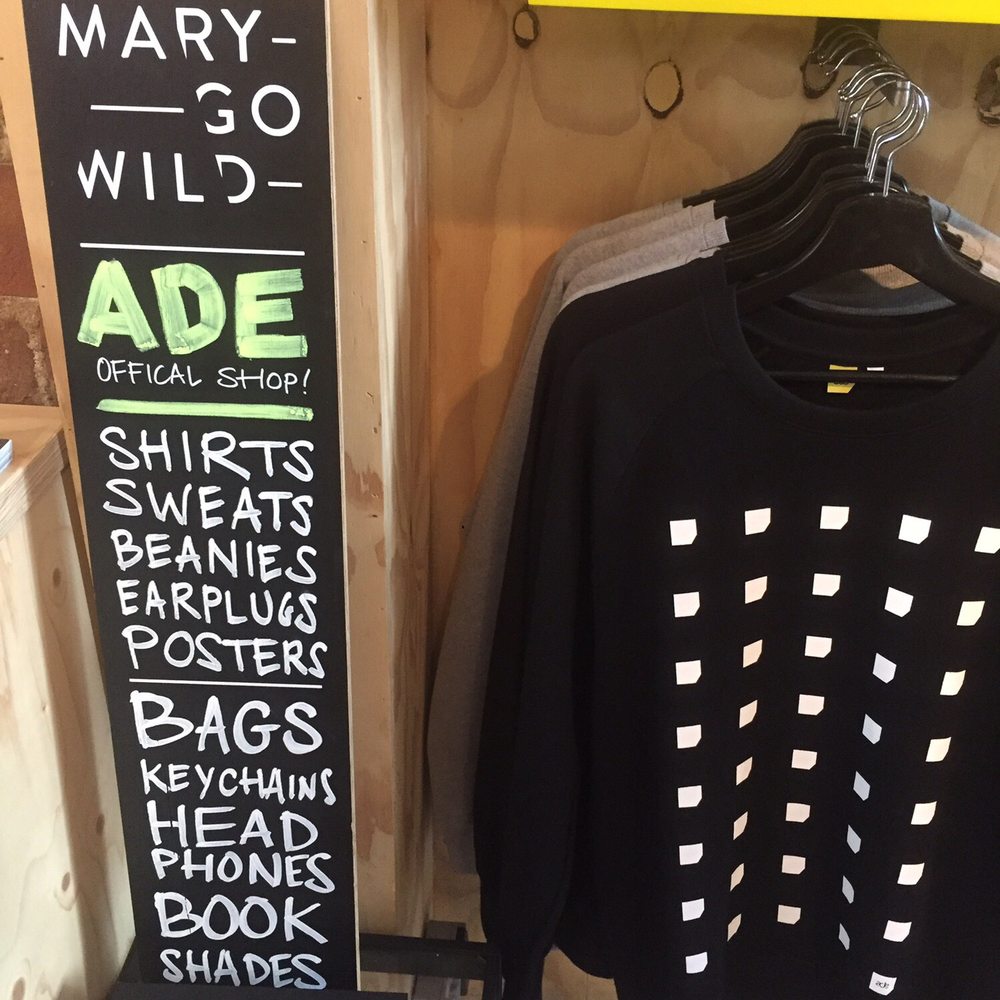 MARY-
—GO
WILD-
ADE
OFFICAL SHOP!
SHIRTS
SWEATS
BEANIES
EARPLUGS
POSTERS
BAGS
KEYCHAINS
HEAD
PHONES
BOOK
SHADES
ade